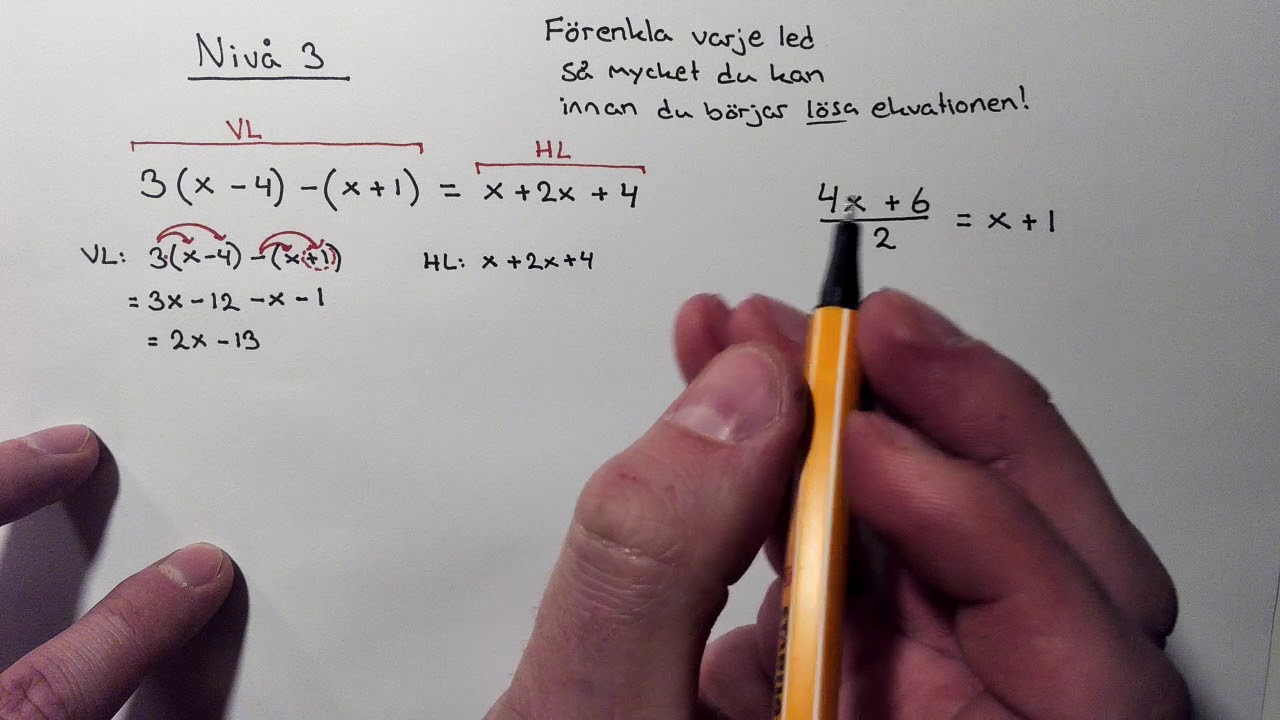 Nivå 3
Förenkla varje led
så mycket du kan
innan du börjar lösa ekvationen!
VL
HL
3(x-4)-(x+1) = x+2x+4
VL: 3(x-4)-(x+1)
= 3x-12-x-1
= 2x-13
HL: x+2x+4
4x+6
2
= x+1